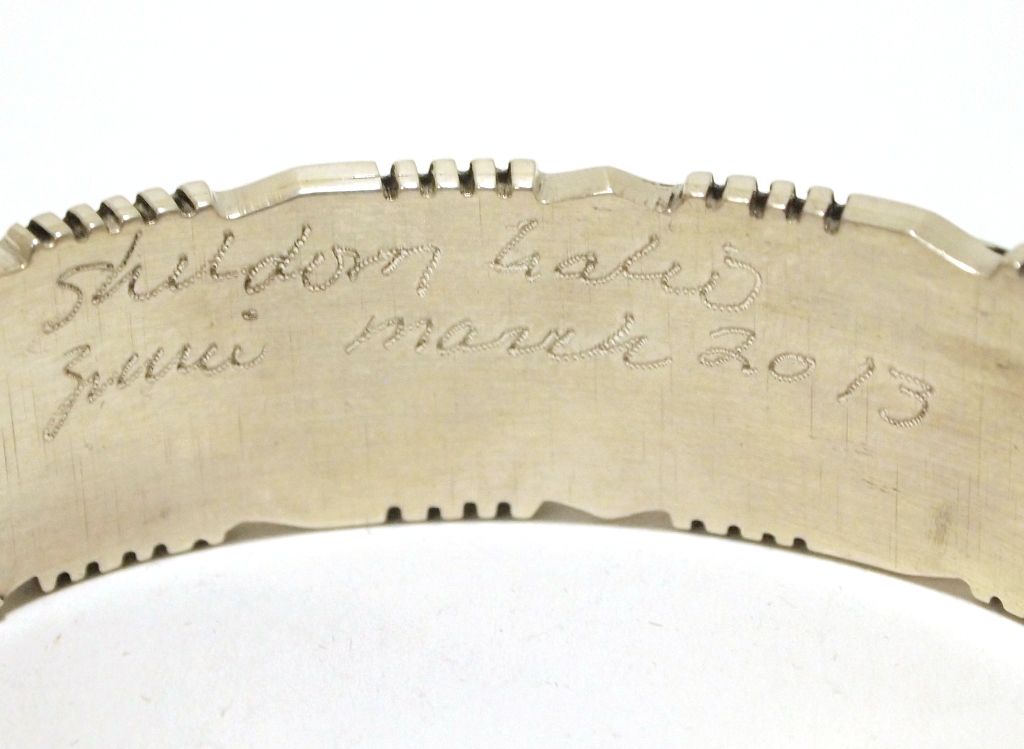 Sheldon Lalio
Zuni march 2013